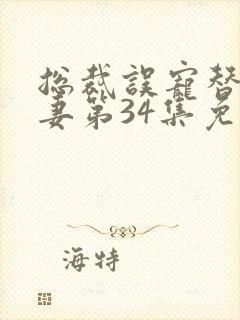 总裁误宠替
妻第34集免
海特